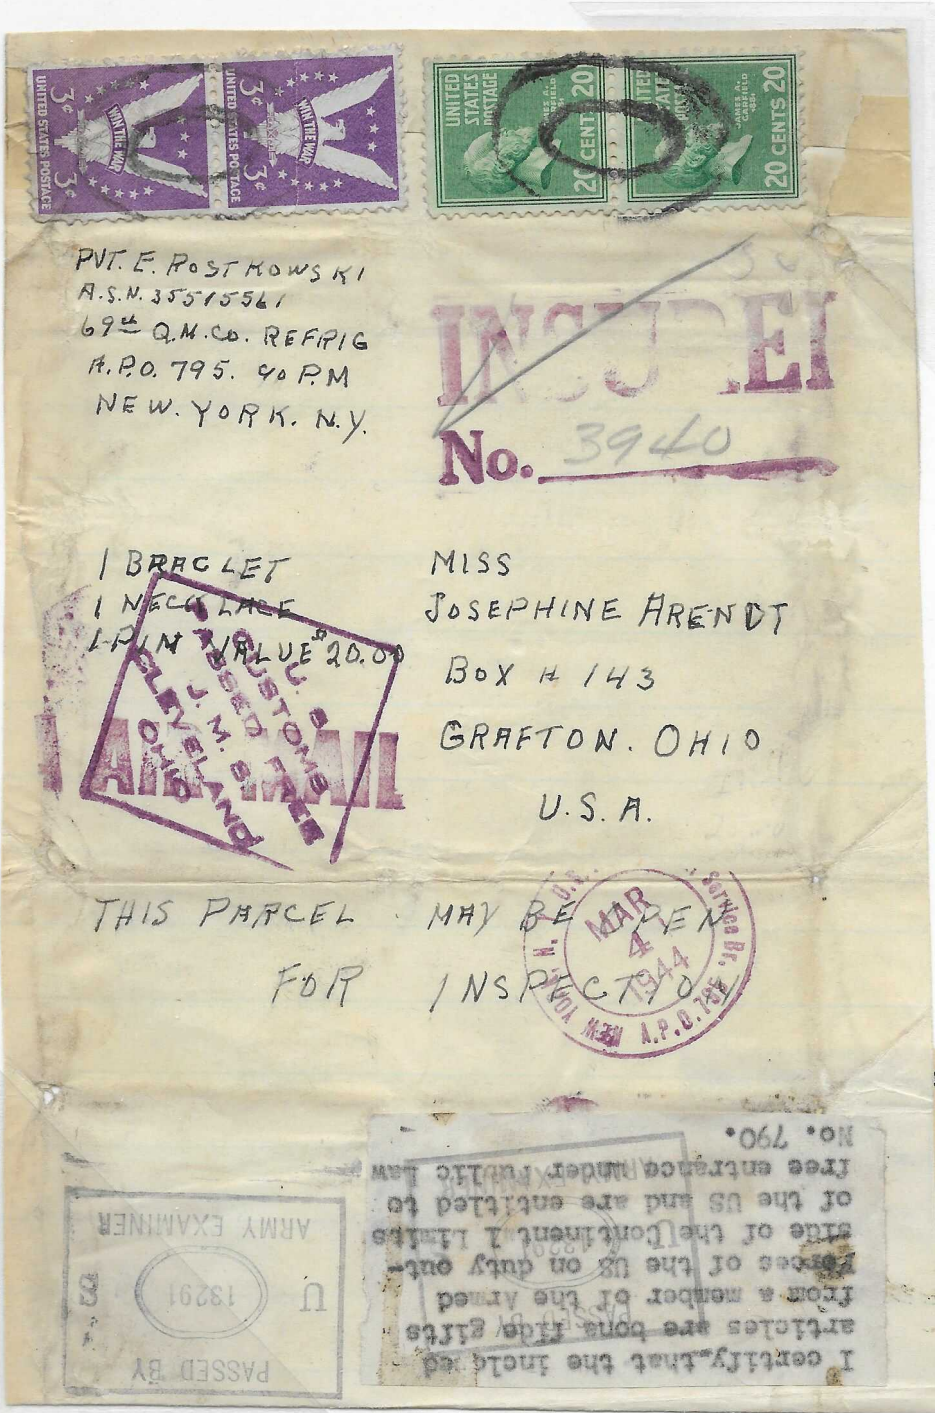 UNITED STATES POSTAGE
3¢ 3¢
WIN THE WAR
UNITED STATES POSTAGE
3¢ 3¢
WIN THE WAR
UNITED STATES POSTAGE
JAMES A. GARFIELD
20 CENTS 20
UNITED STATES POSTAGE
JAMES A. GARFIELD
20 CENTS 20
PVT. E. ROSTKOWSKI
A.S.N. 35515561
69th Q.M.CO. REFRIG
A.P.O. 795. c/o P.M
NEW. YORK. N.Y.
INSURED
No. 3940
1 BRACLET
1 NECKLACE
1-PIN VALUE $20.00
U. S.
CUSTOMS
PASSED FREE
J. M. S.
CLEVELAND,
OHIO
AIR MAIL
MISS
JOSEPHINE ARENDT
BOX # 143
GRAFTON. OHIO
U.S.A.
THIS PARCEL MAY BE OPEN
FOR INSPECTION
MAR
4
1944
Service Br.
NEW YORK, N.
A.P.O. 795
I certify that the inclosed
articles are bona fide gifts
from a member of the Armed
Forces of the US on duty out-
side of the Continent l Limits
of the US and are entitled to
free entrance under Public Law
No. 790.
PASSED BY
U 13291 S
ARMY EXAMINER
PASSED BY
U 13291
ARMY EXAMINER